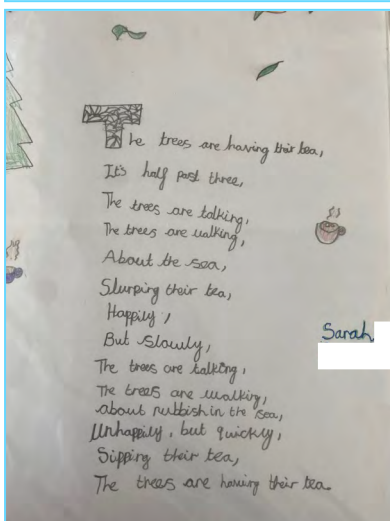 The trees are having thir tea,
It's half past three,
The trees are talking,
The trees are walking,
About the sea,
Slurping their tea,
Happily,
But slowly,
Sarah
The trees are talking,
The trees are walking,
about rubbish in the sea,
Unhappily, but quickly,
Sipping their tea,
The trees are having their tea.